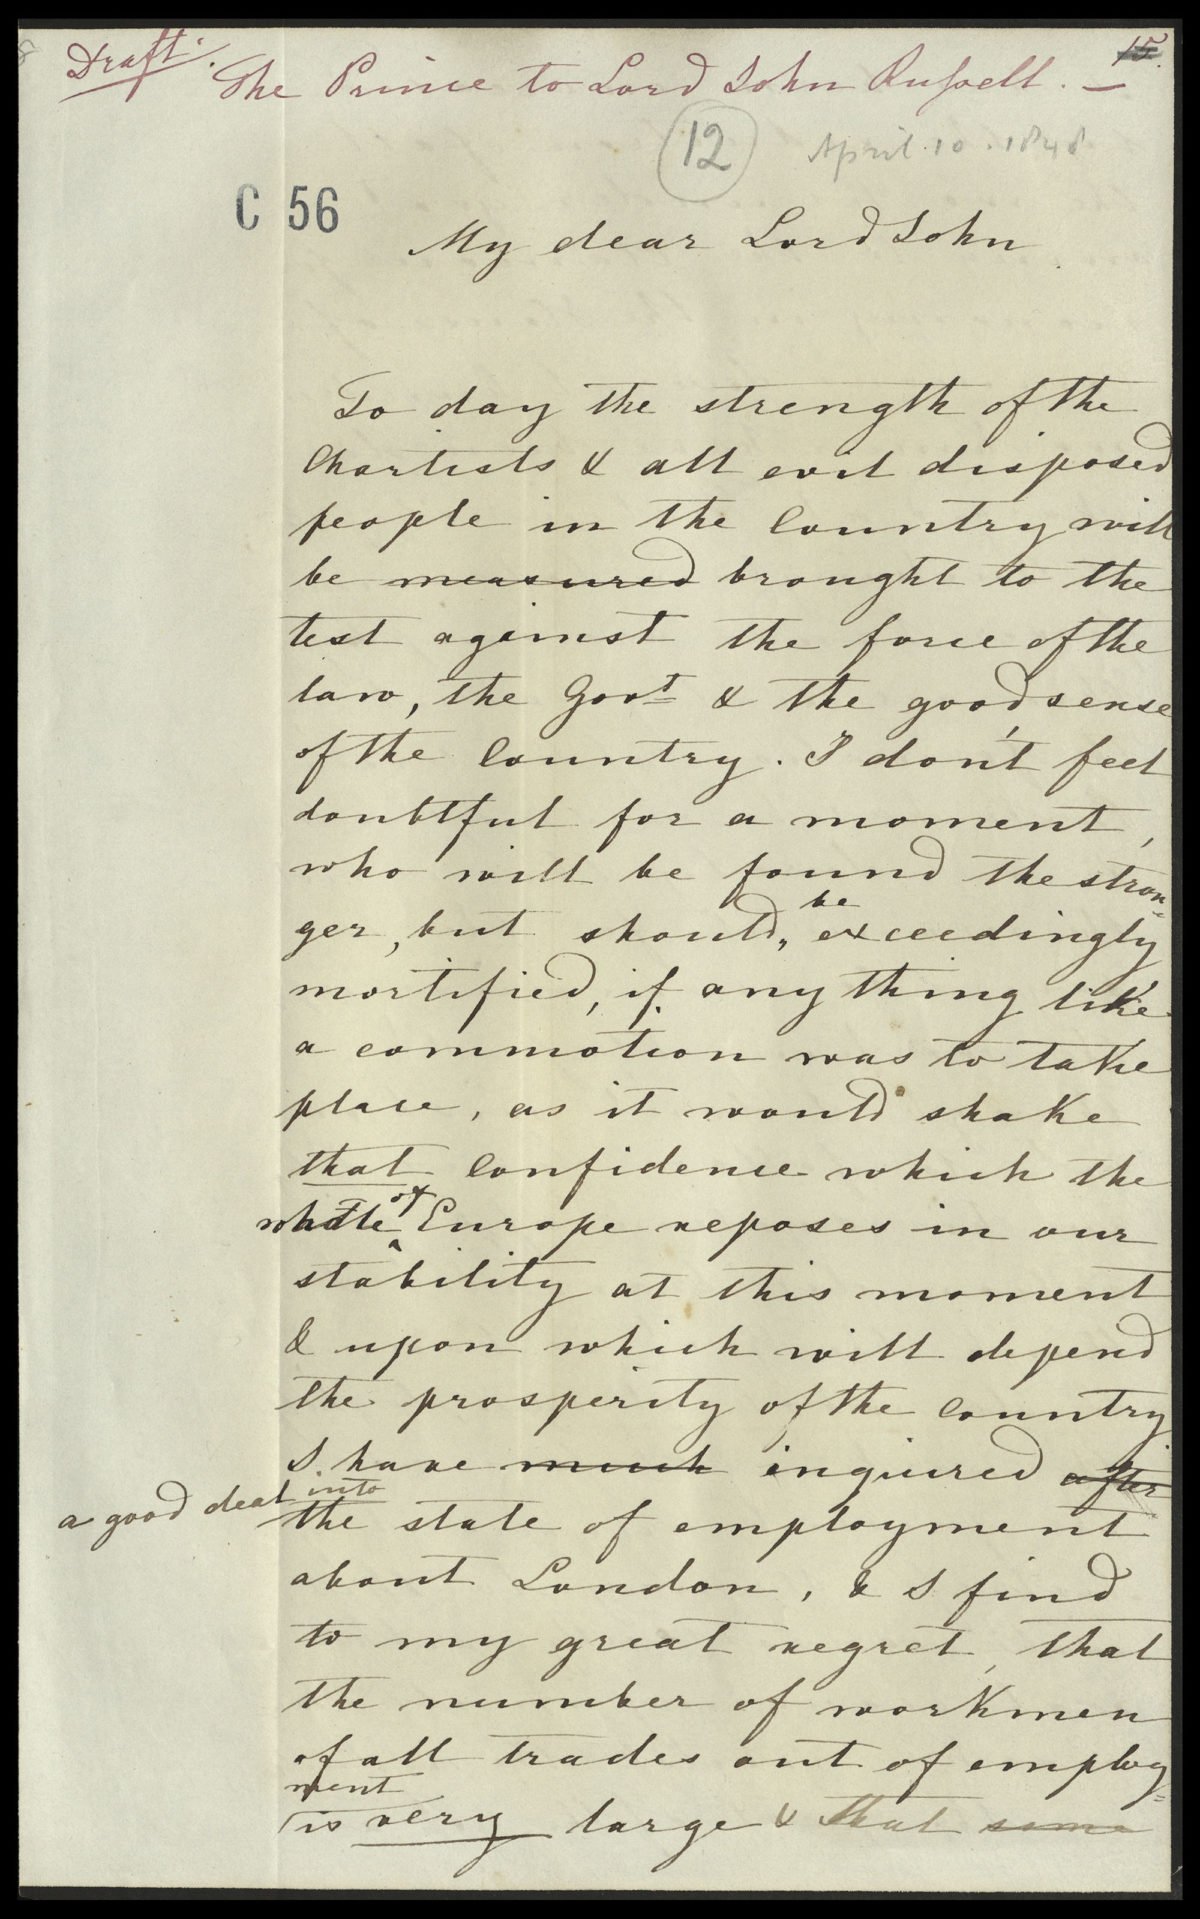 Draft.
The Prince to Lord John Russell. —
15.
12
April. 10. 1848
C 56
My dear Lord John
To day the strength of the
Chartists & all evil disposed
people in the Country will
be measured brought to the
test against the force of the
law, the Govt & the good sense
of the Country. I don't feel
doubtful for a moment,
who will be found the stron=
ger, but should, be exceedingly
mortified, if any thing like
a commotion was to take
place, as it would shake
that confidence which the
whole of Europe reposes in our
stability at this moment
& upon which will depend
the prosperity of the Country
I have much inquired after
a good deal into
the state of employment
about London, & I find
to my great regret, that
the number of workmen
of all trades out of employ=
ment
is very large & that some